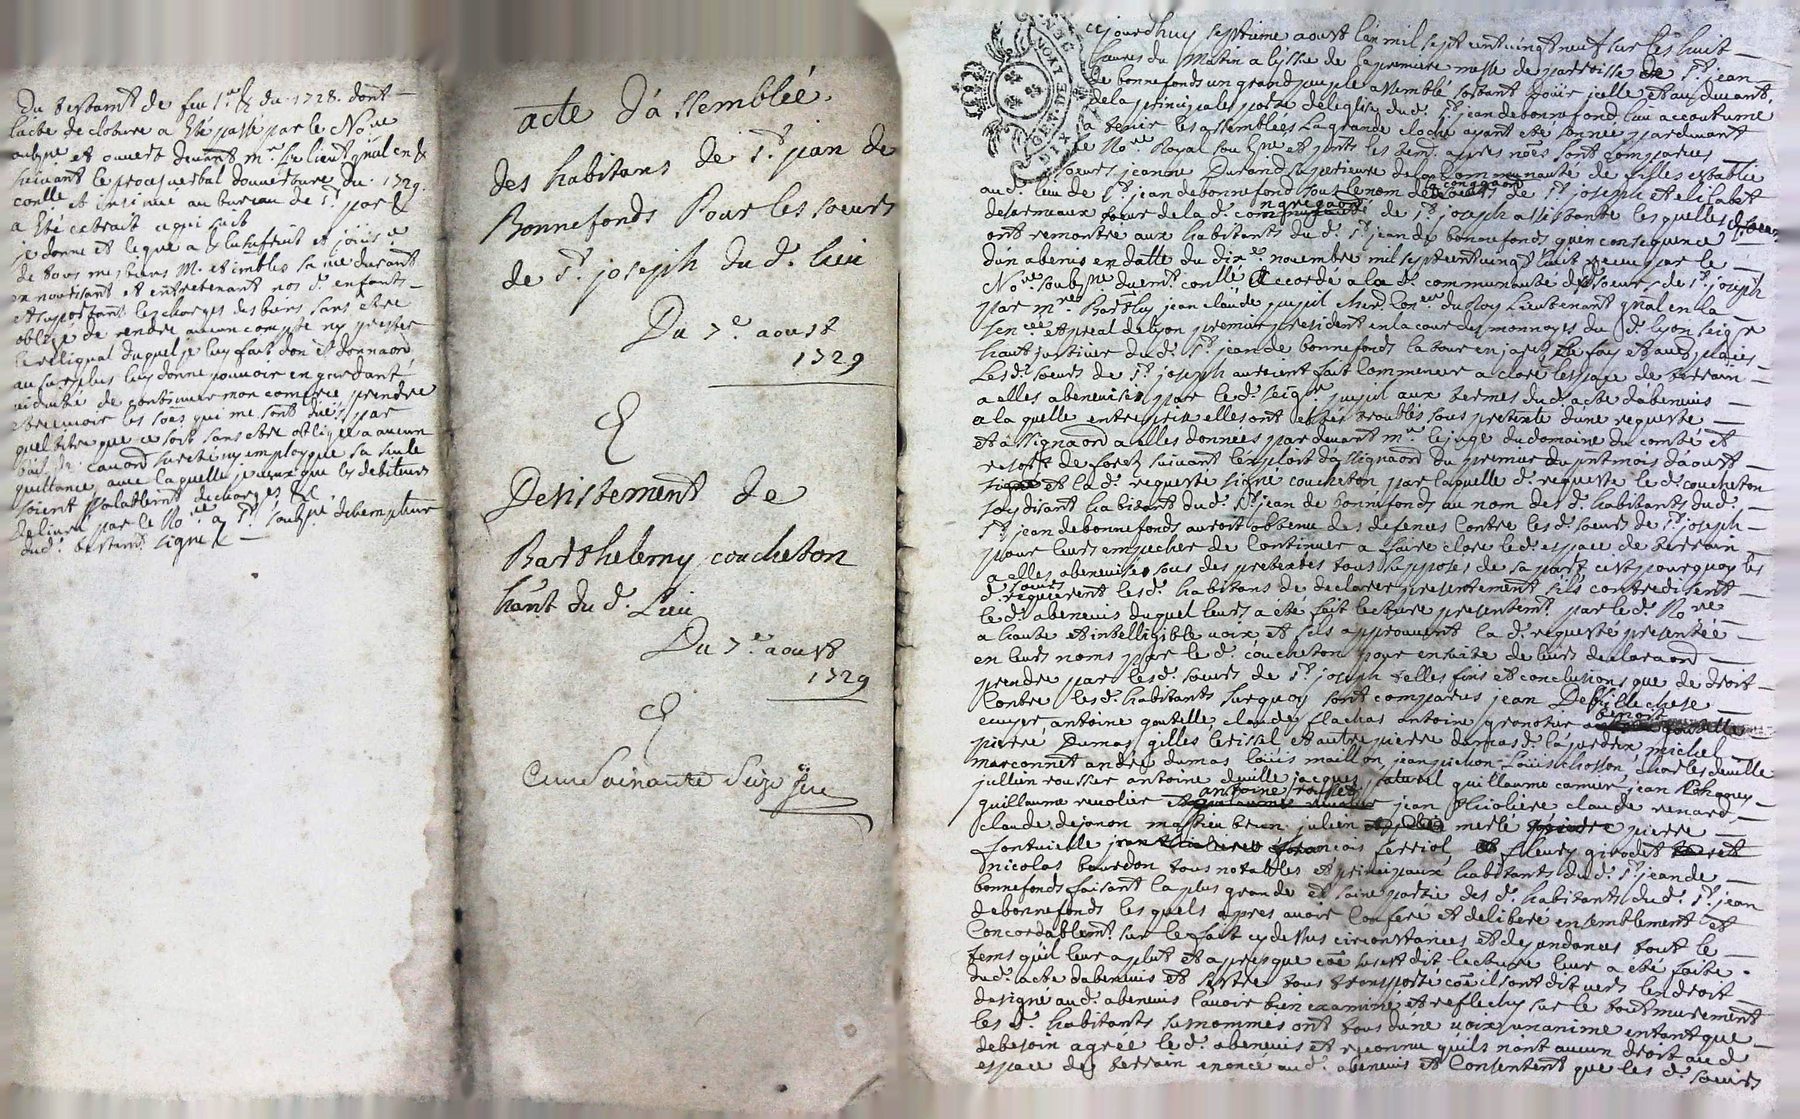 Du testamt de feu Sr & du 1728. dont
lacte de cloture a Eté passé par le Nore
et ouvert devant mr Le lieut gnal en &
suivant le procez verbal douverture du 1729.
conllé et insinué au bureau de St par &
a Eté extrait ce qui suit
je donne et legue a & lusufruit et joüisce
de tous mes biens M. et imbles sa vie durant
en nourissant et entretenant nos d. enfants
et suportant les charges des biens sans etre
obligé de rendre aucun compte ny prester
le relliquat duquel je luy fait don et donnaon
au surplus luy donne pouvoir en gardant
viduité de continuer mon comerce prendre
et recevoir les soes qui me sont dües par
quel titre que ce soit sans etre obligée a aucun
bail de cauon sureté ny employ que sa seule
quittance avec laquelle je veux que les debiteurs
soient valablemt decharges &c
Delivré par le Nore a St soubzné
dud. testamt signé & —
acte d'assemblée
des habitans de St jean de
Bonnefonds Pour les soeurs
de St joseph du d. lieu
Du 7e aoust
1729
&
Desistement de
Barthelemy coucheton
hant du d. Lieu
Du 7e aoust
1729
&
Cent Soixante Seize
GEN DE LYON
DIX DEN
cejourdhuy septieme aoust lan mil sept cent vingt neuf sur les huit
heures du Matin a lissüe de la premiere messe de parroisse de St jean
de bonnefonds un grand peuple assemblé sortant doüir jcelle et au devant
de la principale porte de leglise dud. St jean de bonnefond lieu accoutumé
a tenir les assemblées La grande cloche ayant eté sonnée pardevant
le Nore Royal souzne et prnts les tem. apres nōes sont comparües
soeurs jeanne Durand superieure de la Communauté de filles establie
aud. lieu de St jean de bonnefond sous le nom de la conggaon de St joseph et elizabet
desarmeaux soeur de la d. congregaon de St joseph assistante lesquelles d. soeurs
ont remontré aux habitants du d. St jean de bonnefonds quen consequence
dun abenevis en datte du dixe novembre mil sept cent vingt huit receu par le
Nore soubzne duemt conllé accordé a la d. communauté des soeurs de St joseph
par mre Barthly jean claude pupil chevr conser du Roy Lieutenant gnal en la
senece et preal de lyon premier president en la cour des monnoyes du d. lyon seigr
haut justicier du d. St jean de bonnefonds la tour en jarest le fay et autres places
Les d. soeurs de St joseph auroient fait commencer a clore lespace de terrain
a elles abenevisé par le d. seigr pupil aux termes dud. acte dabenevis
a la quelle entreprise elles ont eté troublés sous pretexte dune requeste
et assignaon a elles données pardevant mr le juge du domaine du comté et
resort de forez suivant lexploit dassignaon du premier du pnt mois daoust
et la d. requeste signé coucheton par laquelle d. requeste le d. coucheton
soy disant habitant dud. St jean de bonnefonds au nom des d. habitants du d.
St jean de bonnefonds auroit obtenu des defences contre les d. soeurs de St joseph
pour leurs empecher de continuer a faire clore le d. espace de terrain
a elles abenevisé sous des pretextes tous supposes de sa part cest pourquoy les
d. soeurs requierent les d. habitans de declarer presentement sils contredisent
le d. abenevis duquel leurs a eté fait lecture presentemt par le d. Nore
a haute et intelligible voix et sils approuvent la d. requeste presentée
en leurs noms par le d. coucheton pour ensuite de leurs declaraon
prendre par les d. soeurs de St joseph telles fins et conclusions que de droit
Contre les d. habitants surquoy sont comparus jean Defville chese
ecuyer antoine goutelle claude flachas antoine benoit
pierre Dumas gilles et autre pierre dumas d. michel
marconnet andré dumas loüis maillon jean louis chosson charles deville
jullien rousset antoine deville jacques guillaume camier jean
guillaume revolier antoine rousset jean claude renard
claude dejanon mathieu brun julien merlé pierre
fontvielle francois ferriol fleury girodet
nicolas bourdon tous notables et principaux habitants du d. St jean de
bonnefonds faisant la plus grande et saine partie des d. habitants du d. St jean
de bonnefonds les quels apres avoir conferé et deliberé ensemblement et
concordablemt sur le fait cy dessus circonstances et dependances tout le
tems quil leur a plut et apres que coe sus est dit lecture leur a eté faite
du d. acte dabenevis et sestre tous transporté coe il sont dit vers lendroit
designé aud. abenevis lavoir bien examiné et reflechy sur le tout murement
les d. habitants susnommés ont tous dune voix unanime entant que
de besoin agree le d. abenevis et reconnu quils n'ont aucun droit au d.
espace de terrain enoncé aud. abenevis et consentent que les d. soeurs